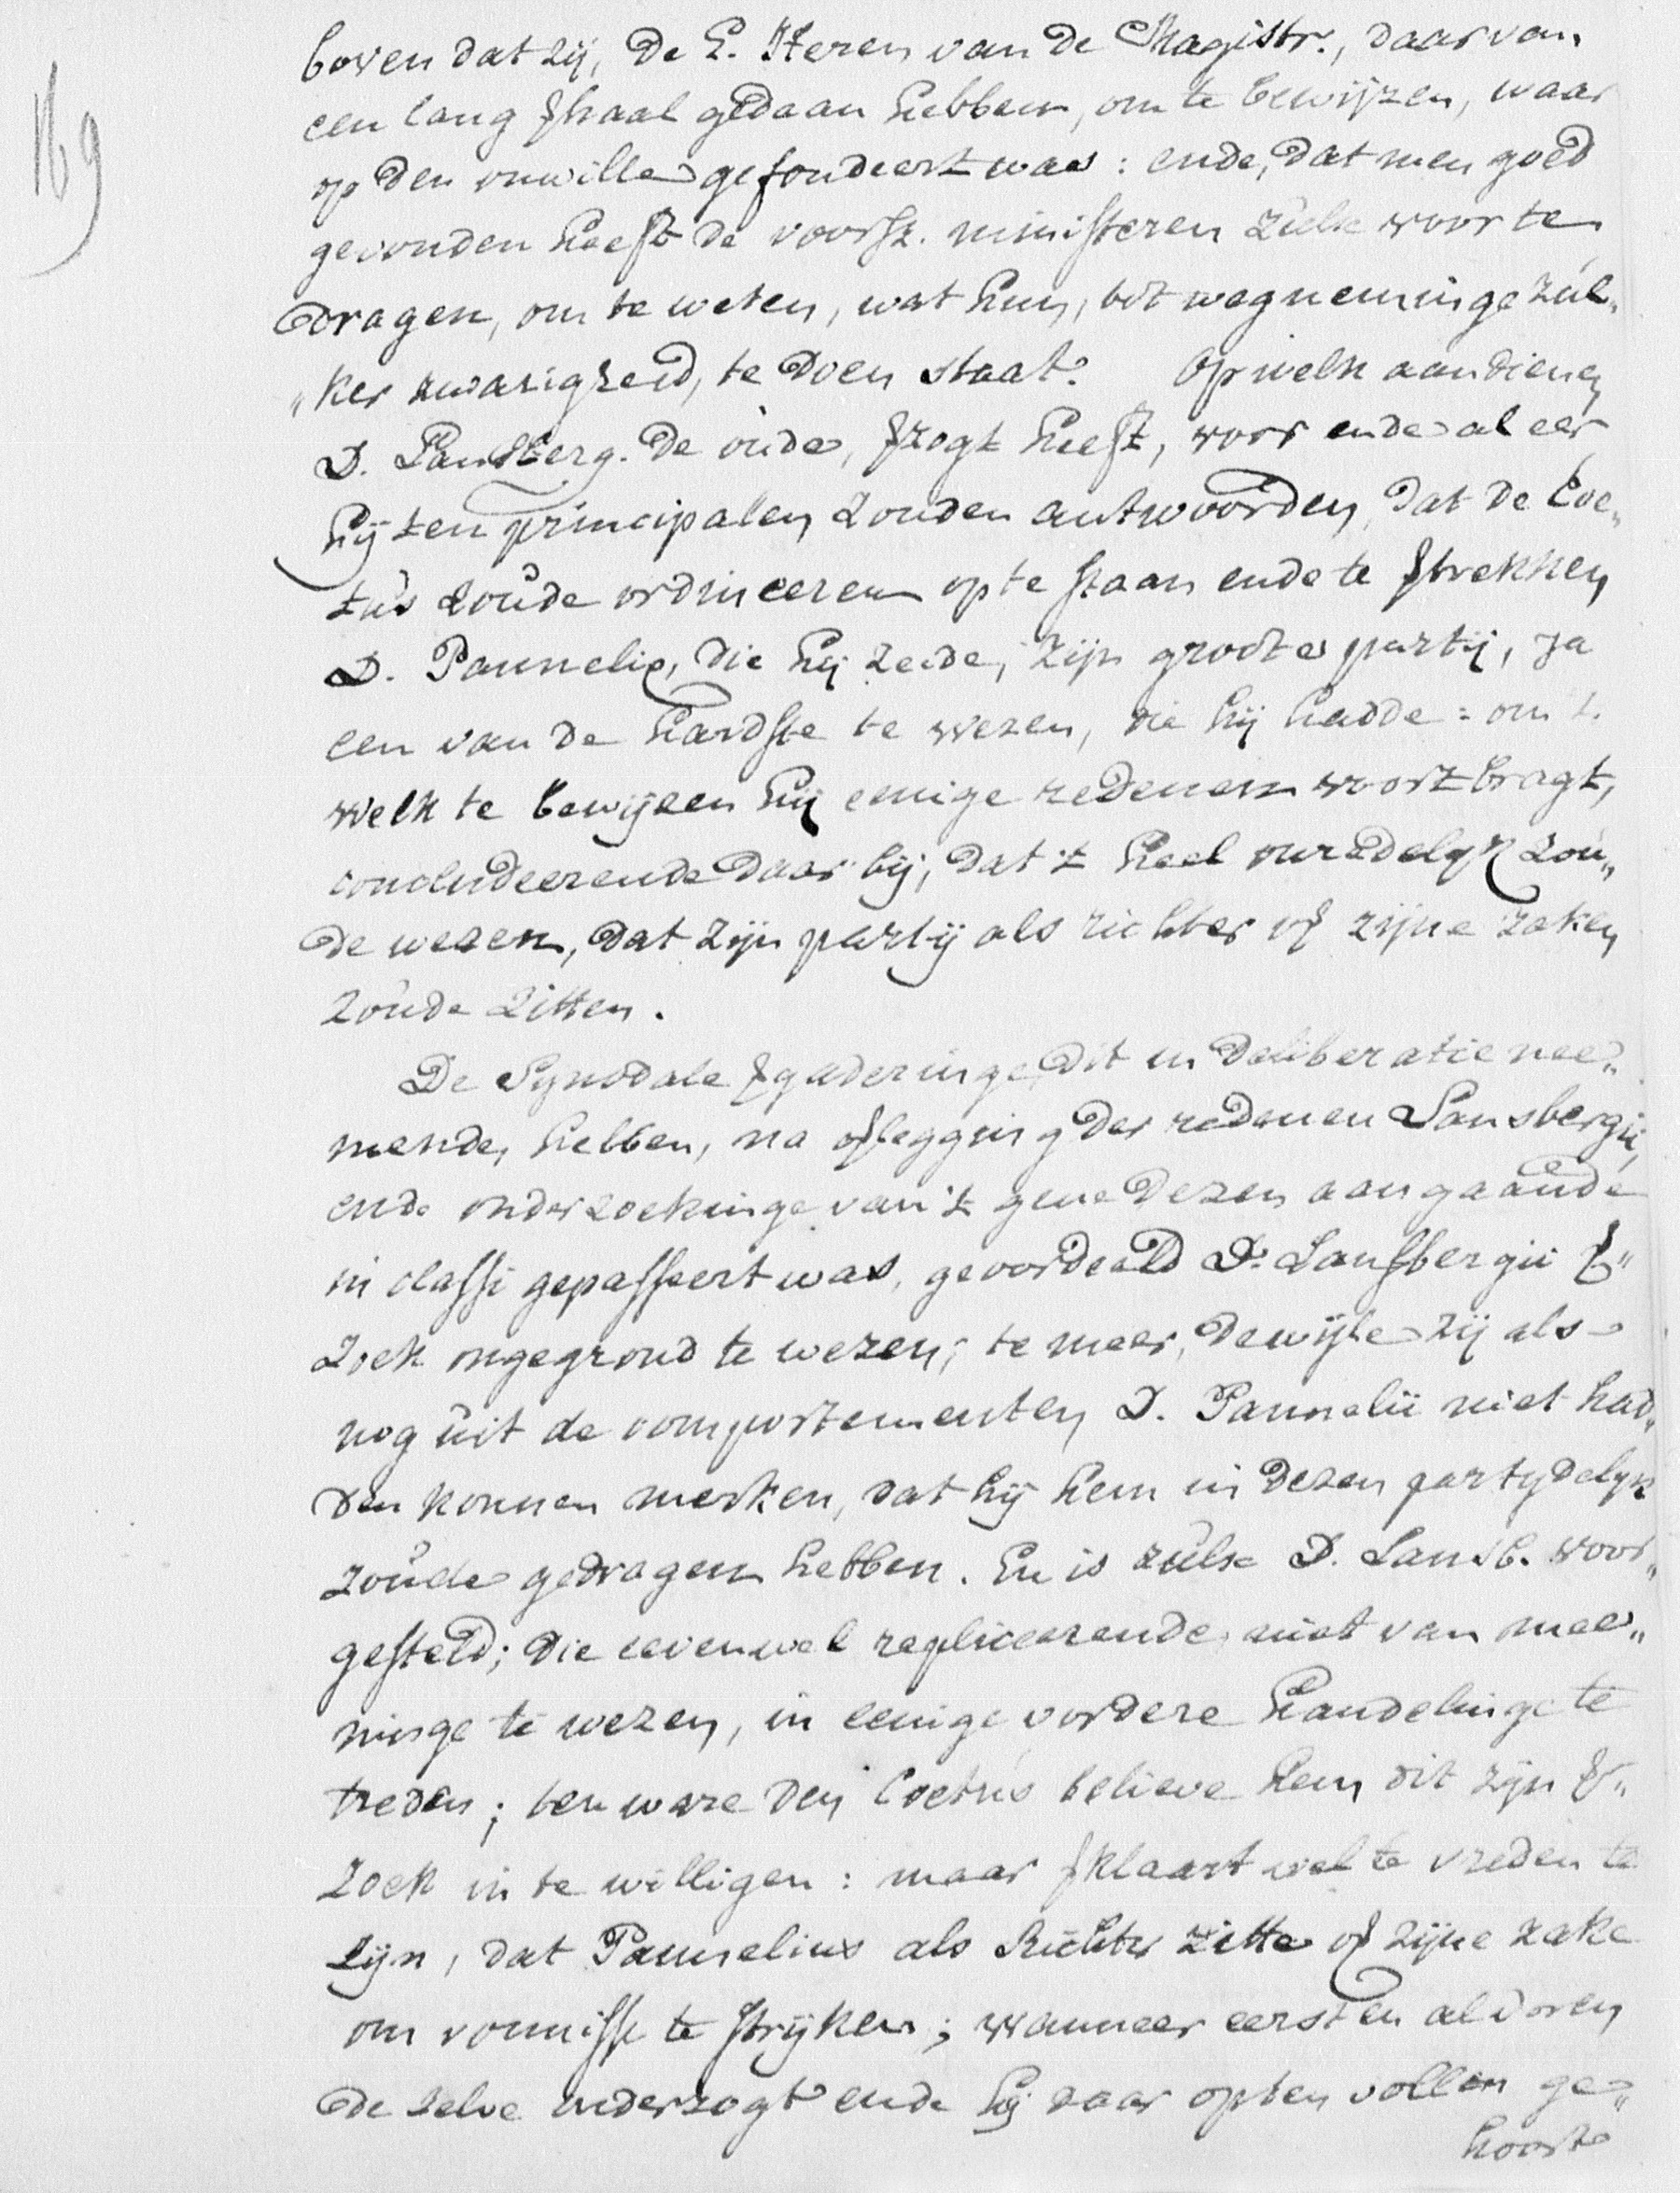 169
boven dat zij, de E. Heren van de Magistr., daarvan
een lang ℣haal gedaan hebben, om te bewijzen, waar
op den onwille gefondeert was: ende, dat men goed
gevonden heeft de voorsz. ministeren zulx voor te
dragen, om te weten, wat hun, tot wegneminge zul„
„ker zwarigheid, te doen staat. Op welk aandienen
D. Lansberg. de oude, ℣zogt heeft, voor ende al eer
hij ten principalen zouden antwoorden, dat de Coe„
tus zoude ordineeren op te staan ende te ℣trekken
D. Pannelio, die hij zeide, zijn grootes partij, ja
een van de hardste te wezen, die hij hadde: om 't
welk te bewijzen hij eenige redenen voortbragt,
concludeerende daar bij, dat 't heel onredelyk zou„
de wezen, dat zijn partij als richter of zijne zaken
zoude zitten.
De Synodale ℣gaderinge, dit in deliberatie nee„
mende, hebben, na oflegging der redenen Lansbergii,
ende onderzoekinge van 't gene dezen aangaande
in classi gepasseert was, geoordeeld D. Lansbergii ℣„
zoek ongegrond te wezen; te meer, dewijle zij als
nog uit de comportementen D. Pannelii niet had„
den konnen merken, dat hij hem in dezen partydelyk
zoude gedragen hebben. En is zulx D. Lansb. voor„
gesteld; die eevenwel repliceerende, niet van mee„
ninge te wezen, in eenige vordere handelinge te
treden; ten ware den Coetus believe hem dit zijn ℣„
zoek in te willigen: maar ℣klaart wel te vreden te
zijn, dat Pannelius als Richter zitte of zijne zake
om vonnisse te strijken; wanneer eerst en al voren
de zelve onderzogt ende hij daar op ten vollen ge„
hoort